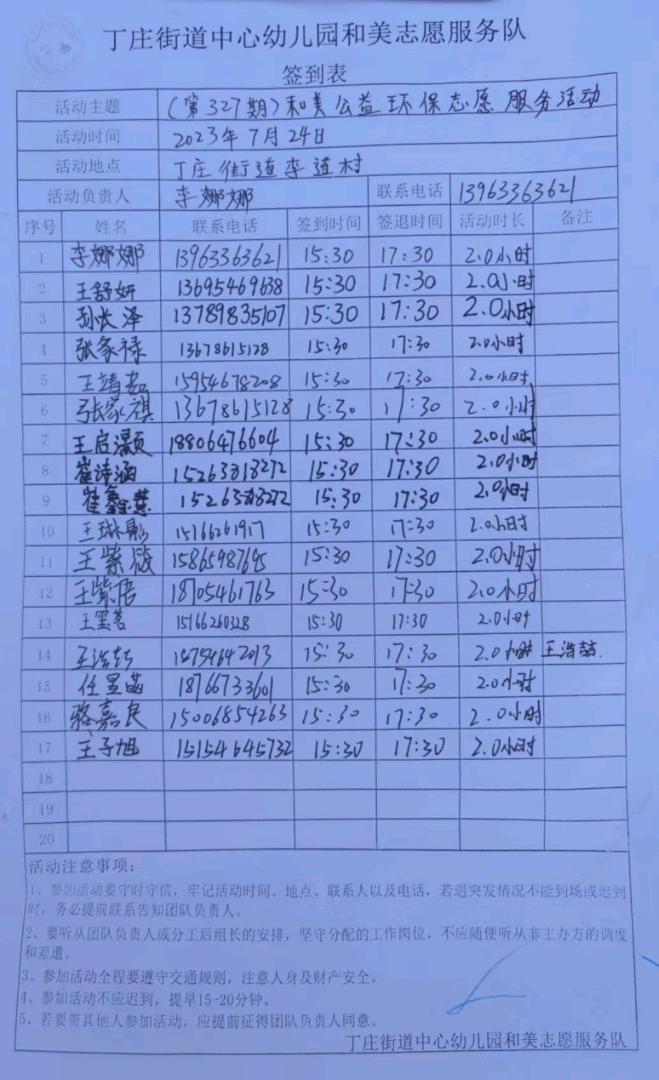 丁庄街道中心幼儿园和美志愿服务队
签到表
活动主题 (第327期)和美公益环保志愿服务活动
活动时间 2023年7月24日
活动地点 丁庄街道李道村
活动负责人 李娜娜 联系电话 13963363621
序号 姓名 联系电话 签到时间 签退时间 活动时长 备注
1 李娜娜 13963363621 15:30 17:30 2.0小时
2 王舒妍 13695469638 15:30 17:30 2.0小时
3 孙长泽 13789835107 15:30 17:30 2.0小时
4 张家禄 13678615128 15:30 17:30 2.0小时
5 王靖茹 15954678208 15:30 17:30 2.0小时
6 张家祺 13678615128 15:30 17:30 2.0小时
7 王启灏 18806476604 15:30 17:30 2.0小时
8 崔诗涵 15263818272 15:30 17:30 2.0小时
9 崔鑫慧 15263818272 15:30 17:30 2.0小时
10 15166261917 15:30 17:30 2.0小时
11 王紫薇 15865987695 15:30 17:30 2.0小时
12 王紫倍 18705461763 15:30 17:30 2.0小时
13 15166260328 15:30 17:30 2.0小时
14 王浩喆 15754642013 15:30 17:30 2.0小时 王浩喆.
15 任昱菡 18766733601 15:30 17:30 2.0小时
16 骆嘉良 15006854263 15:30 17:30 2.0小时
17 王子旭 15154645732 15:30 17:30 2.0小时
18
19
20
活动注意事项:
1、参加活动要守时守信，牢记活动时间、地点、联系人以及电话，若遇突发情况不能到场或迟到
时，务必提前联系告知团队负责人。
2、要听从团队负责人或分工后组长的安排，坚守分配的工作岗位，不应随便听从非主办方的调度
和差遣。
3、参加活动全程要遵守交通规则，注意人身及财产安全。
4、参加活动不应迟到，提早15-20分钟。
5、若要带其他人参加活动，应提前征得团队负责人同意。
丁庄街道中心幼儿园和美志愿服务队